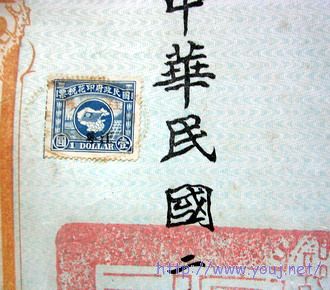 中華民國
國民政府印花稅票
壹
圓
1 DOLLAR
http://www.youj.net/